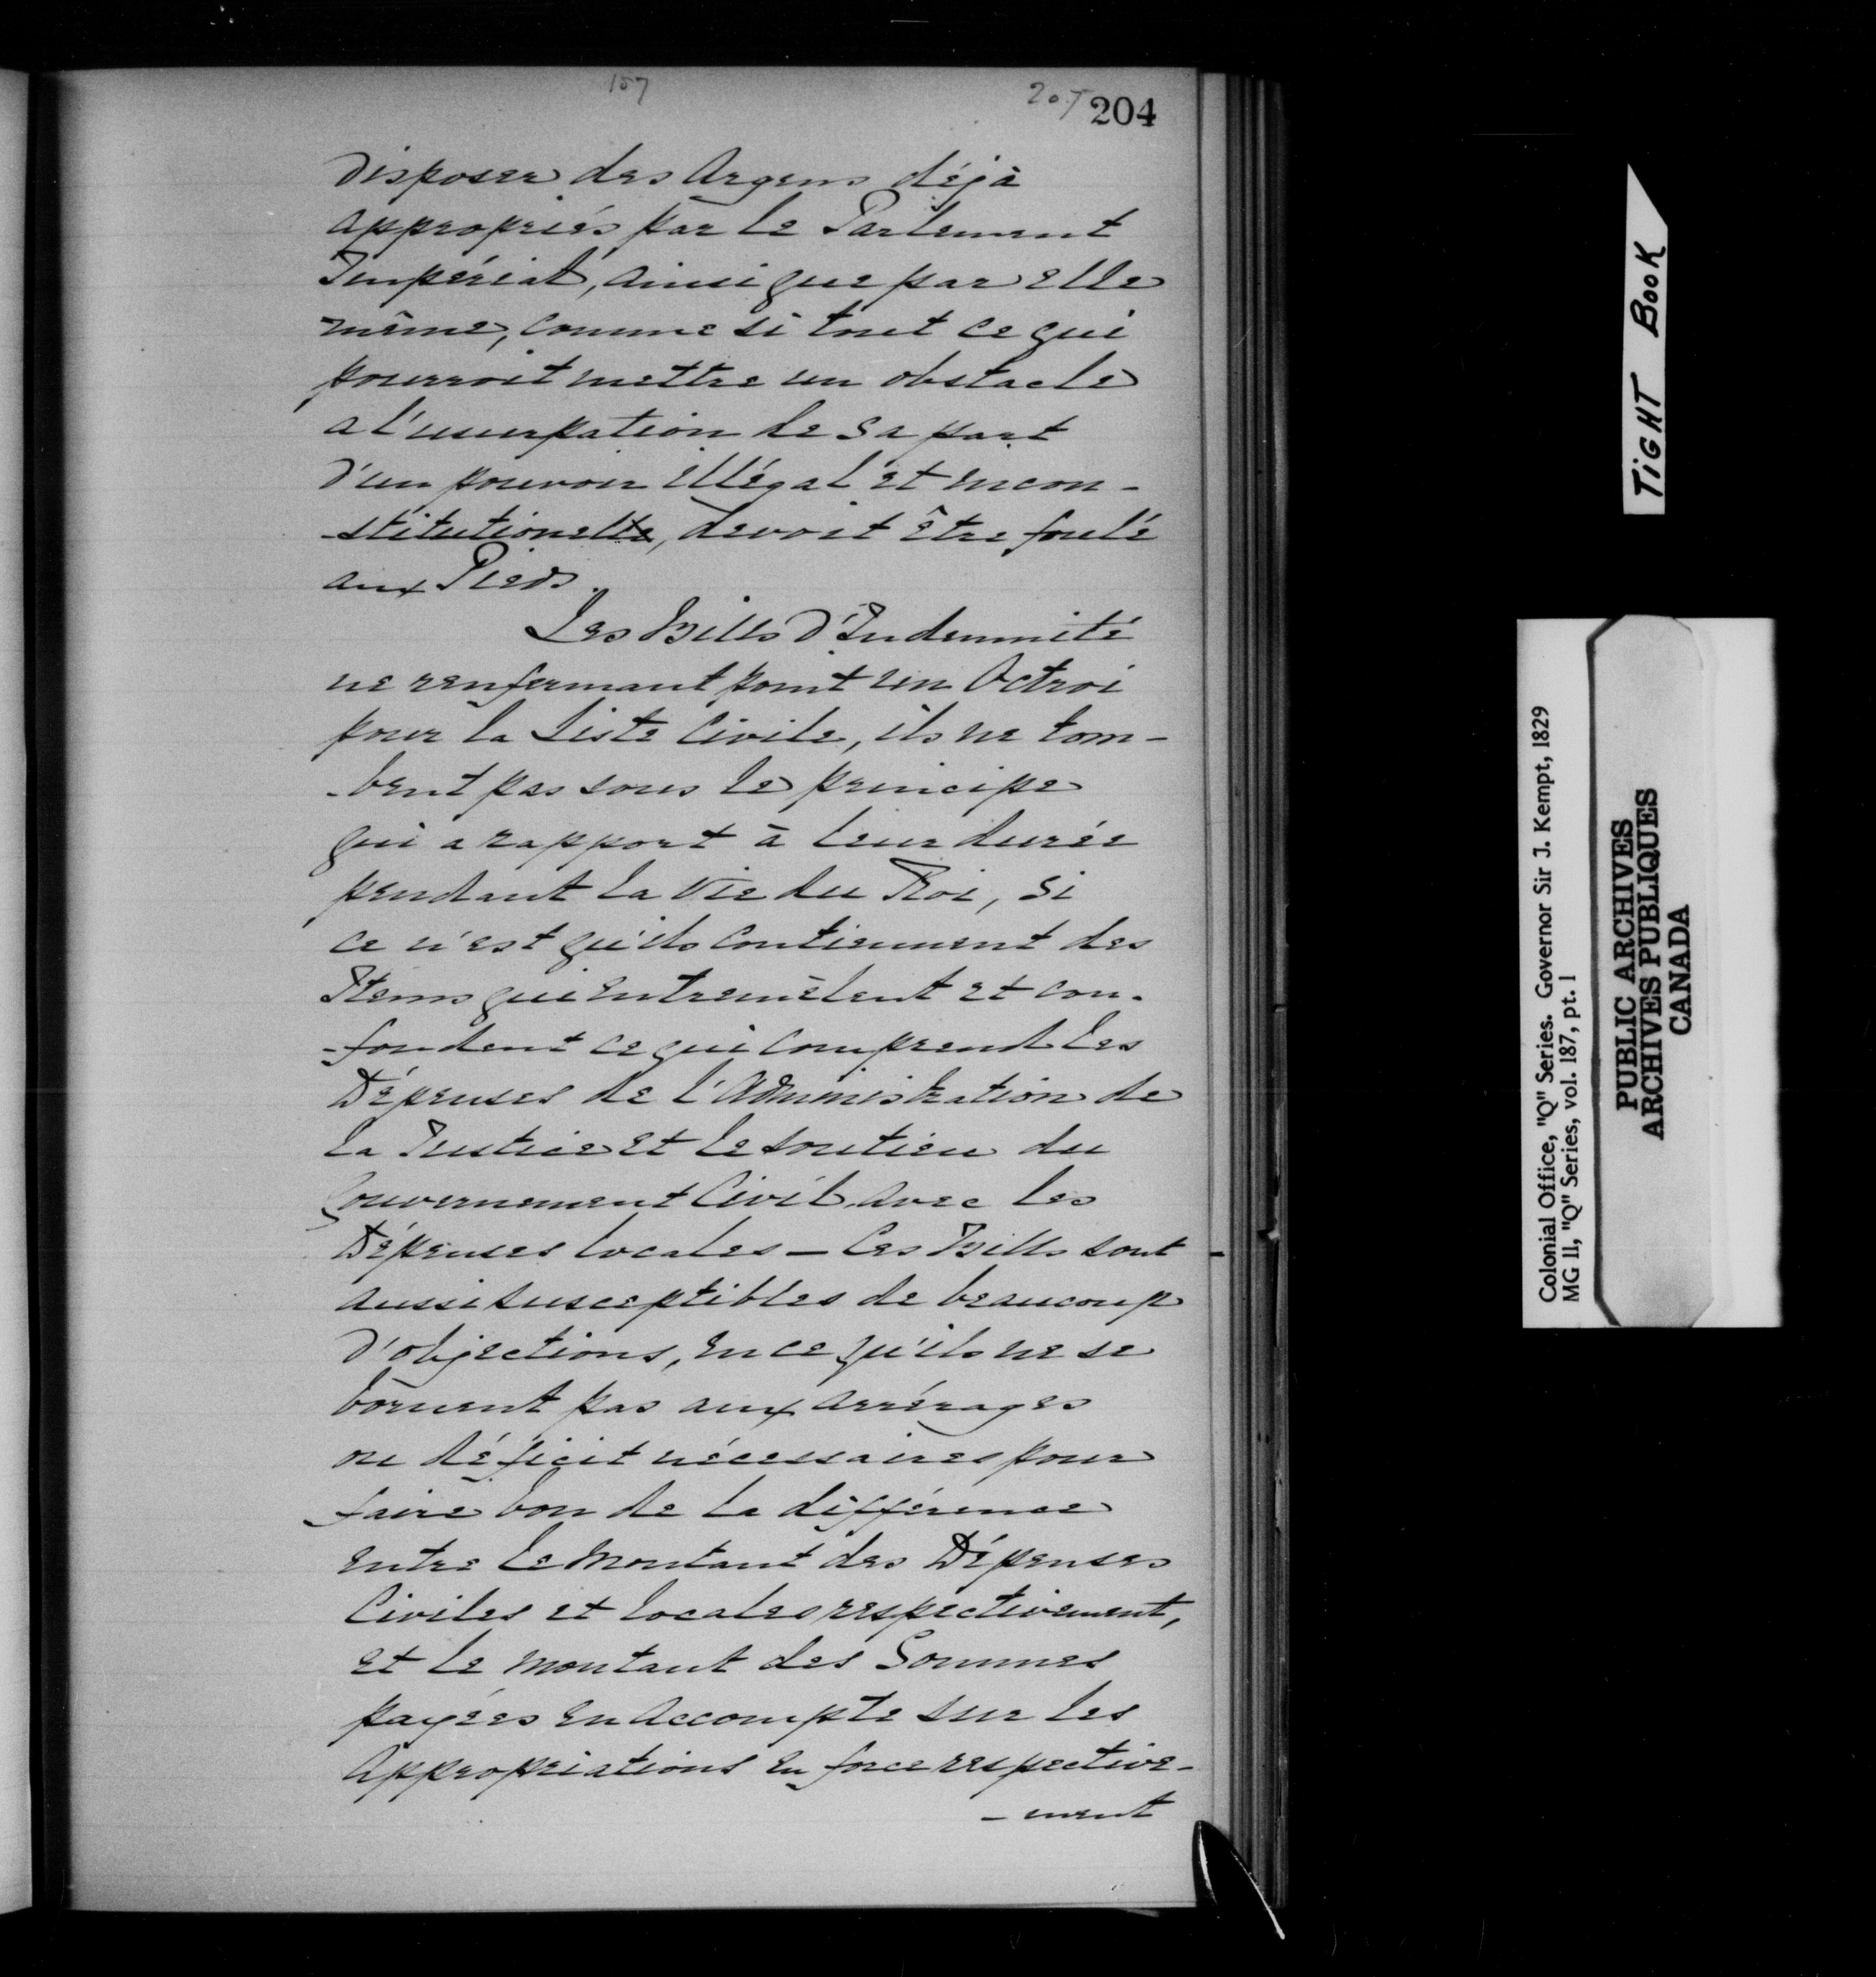 157
205 204
disposer des Argens déjà
appropriés par le Parlement
Impérial, ainsi que par elle
même, comme si tout ce qui
pourroit mettre un obstacle
a l'usurpation de sa part
d'un pouvoir illégal et incon-
-stitutionelle, devoit être foulé
aux Pieds.
Les Bills d'Indemnité
ne renfermant point un Octroi
pour la Liste Civile, ils ne tom-
-bent pas sous le principe
qui a rapport à leur durée
pendant la vie du Roi, si
ce n'est qu'ils contiennent des
Items qui entremêlent et con-
-fondent ce qui comprend les
Dépenses de l'Administration de
la Justice et le soutien du
Gouvernement Civil avec les
Dépenses locales — Ces Bills sont -
aussi susceptibles de beaucoup
d'objections, en ce qu'ils ne se
bornent pas aux arrérages
ou déficit nécessaires pour
faire bon de la différence
entre le Montant des Dépenses
Civiles et locales respectivement,
et le montant des Sommes
payées en Accompte sur les
Appropriations en force respective-
-ment
TIGHT BOOK
Colonial Office, "Q" Series. Governor Sir J. Kempt, 1829
MG 11, "Q" Series, vol. 187, pt. 1
PUBLIC ARCHIVES
ARCHIVES PUBLIQUES
CANADA